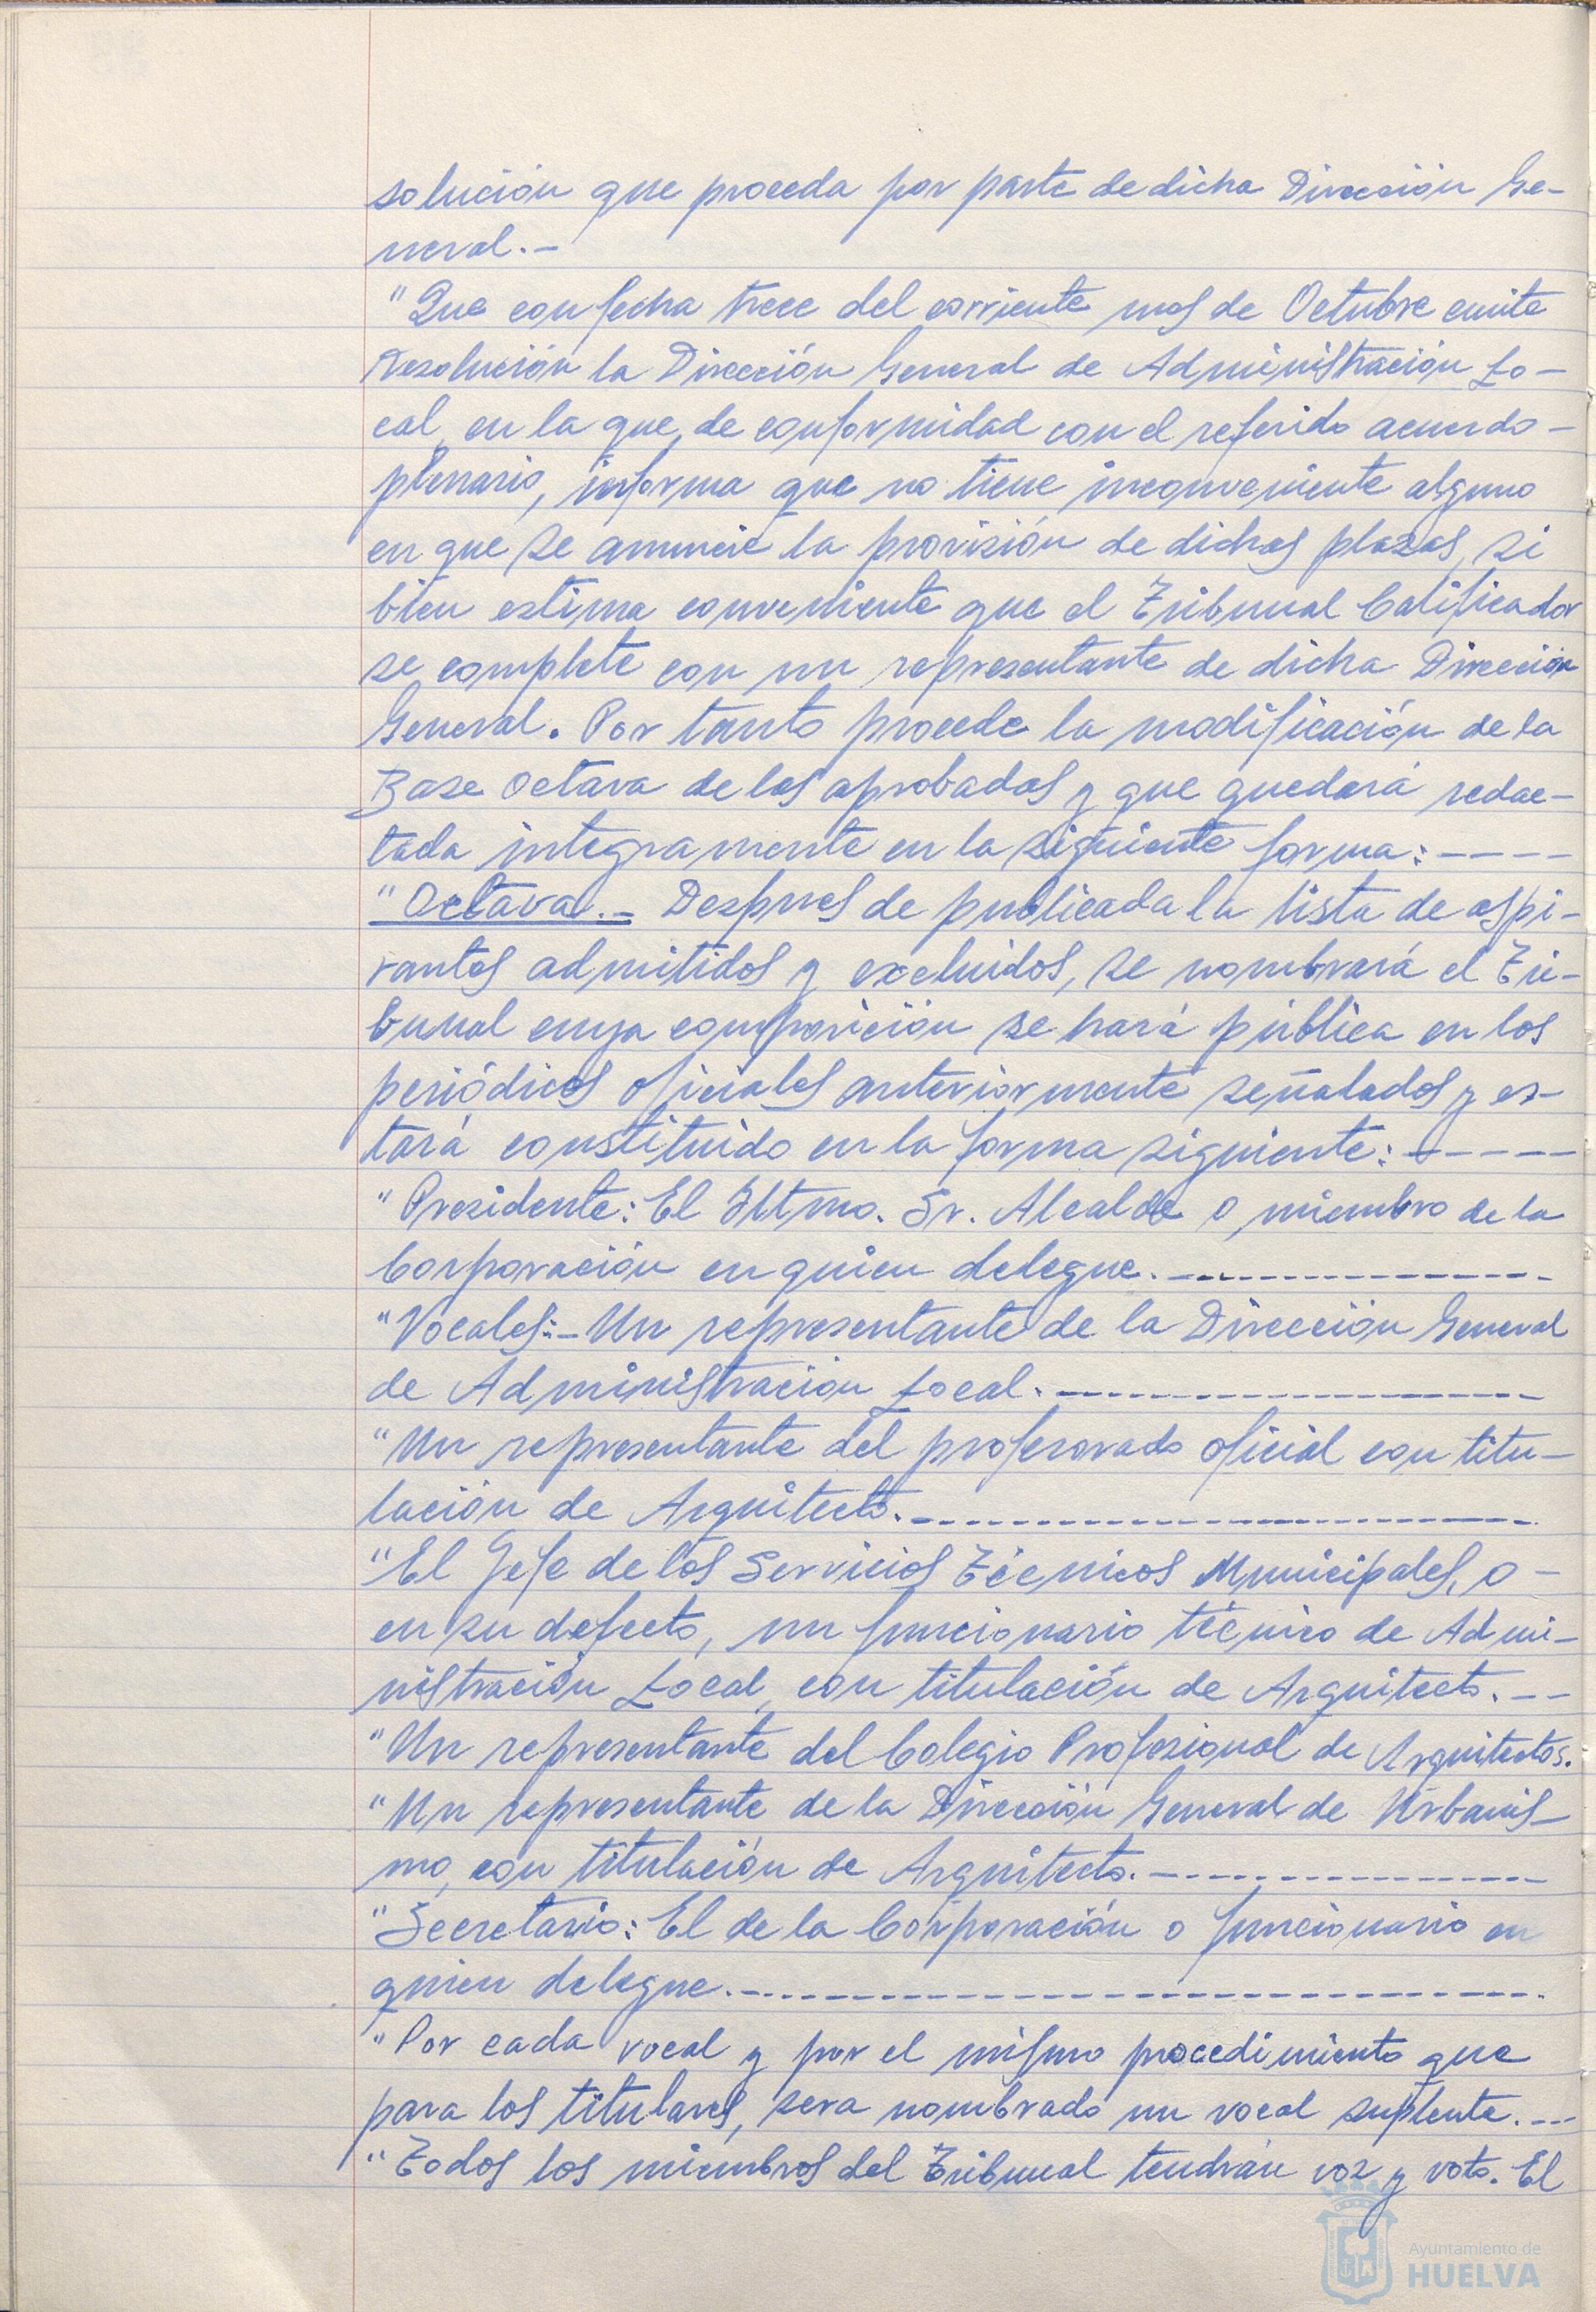 solución que proceda por parte de dicha Dirección Ge-
neral.-
"Que con fecha trece del corriente mes de Octubre emite
Resolución la Dirección General de Administración Lo-
cal, en la que, de conformidad con el referido acuerdo-
plenario, informa que no tiene inconveniente alguno
en que se anuncie la provisión de dichas plazas, si
bien estima conveniente que el Tribunal Calificador
se complete con un representante de dicha Dirección
General. Por tanto procede la modificación de la
Base Octava de las aprobadas y que quedará redac-
tada integramente en la siguiente forma:----
"Octava.- Despues de publicada la lista de aspi-
rantes admitidos y excluidos, se nombrará el Tri-
bunal cuya composición se hará pública en los
periódicos oficiales anteriormente señalados y es-
tará constituido en la forma siguiente:-----
"Presidente: El Iltmo. Sr. Alcalde o miembro de la
Corporación en quien delegue.----------------
"Vocales:- Un representante de la Dirección General
de Administración Local.------------------
"Un representante del profesorado oficial con titu-
lación de Arquitecto.------------------------
"El Jefe de los Servicios Técnicos Municipales, o-
en su defecto, un funcionario técnico de Admi-
nistración Local, con titulación de Arquitecto.--
"Un representante del Colegio Profesional de Arquitectos.
"Un representante de la Dirección General de Urbanis-
mo, con titulación de Arquitecto.---------------
"Secretario: El de la Corporación o funcionario en
quien delegue.------------------------------
"Por cada vocal y por el mismo procedimiento que
para los titulares, sera nombrado un vocal suplente.---
"Todos los miembros del Tribunal tendrán voz y voto. El
Ayuntamiento de
HUELVA